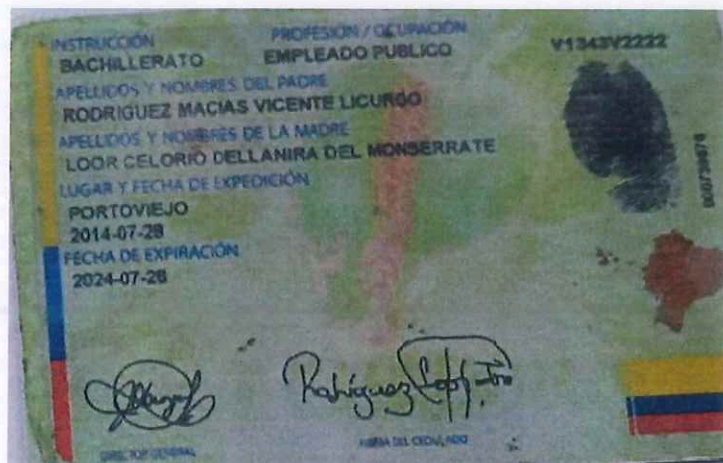 INSTRUCCIÓN PROFESIÓN / OCUPACIÓN
BACHILLERATO EMPLEADO PUBLICO V1343V2222
APELLIDOS Y NOMBRES DEL PADRE
RODRIGUEZ MACIAS VICENTE LICURGO
APELLIDOS Y NOMBRES DE LA MADRE
LOOR CELORIO DELLANIRA DEL MONSERRATE
LUGAR Y FECHA DE EXPEDICIÓN
PORTOVIEJO
2014-07-28
FECHA DE EXPIRACIÓN
2024-07-28
Rodríguez
DIRECTOR GENERAL FIRMA DEL CEDULADO